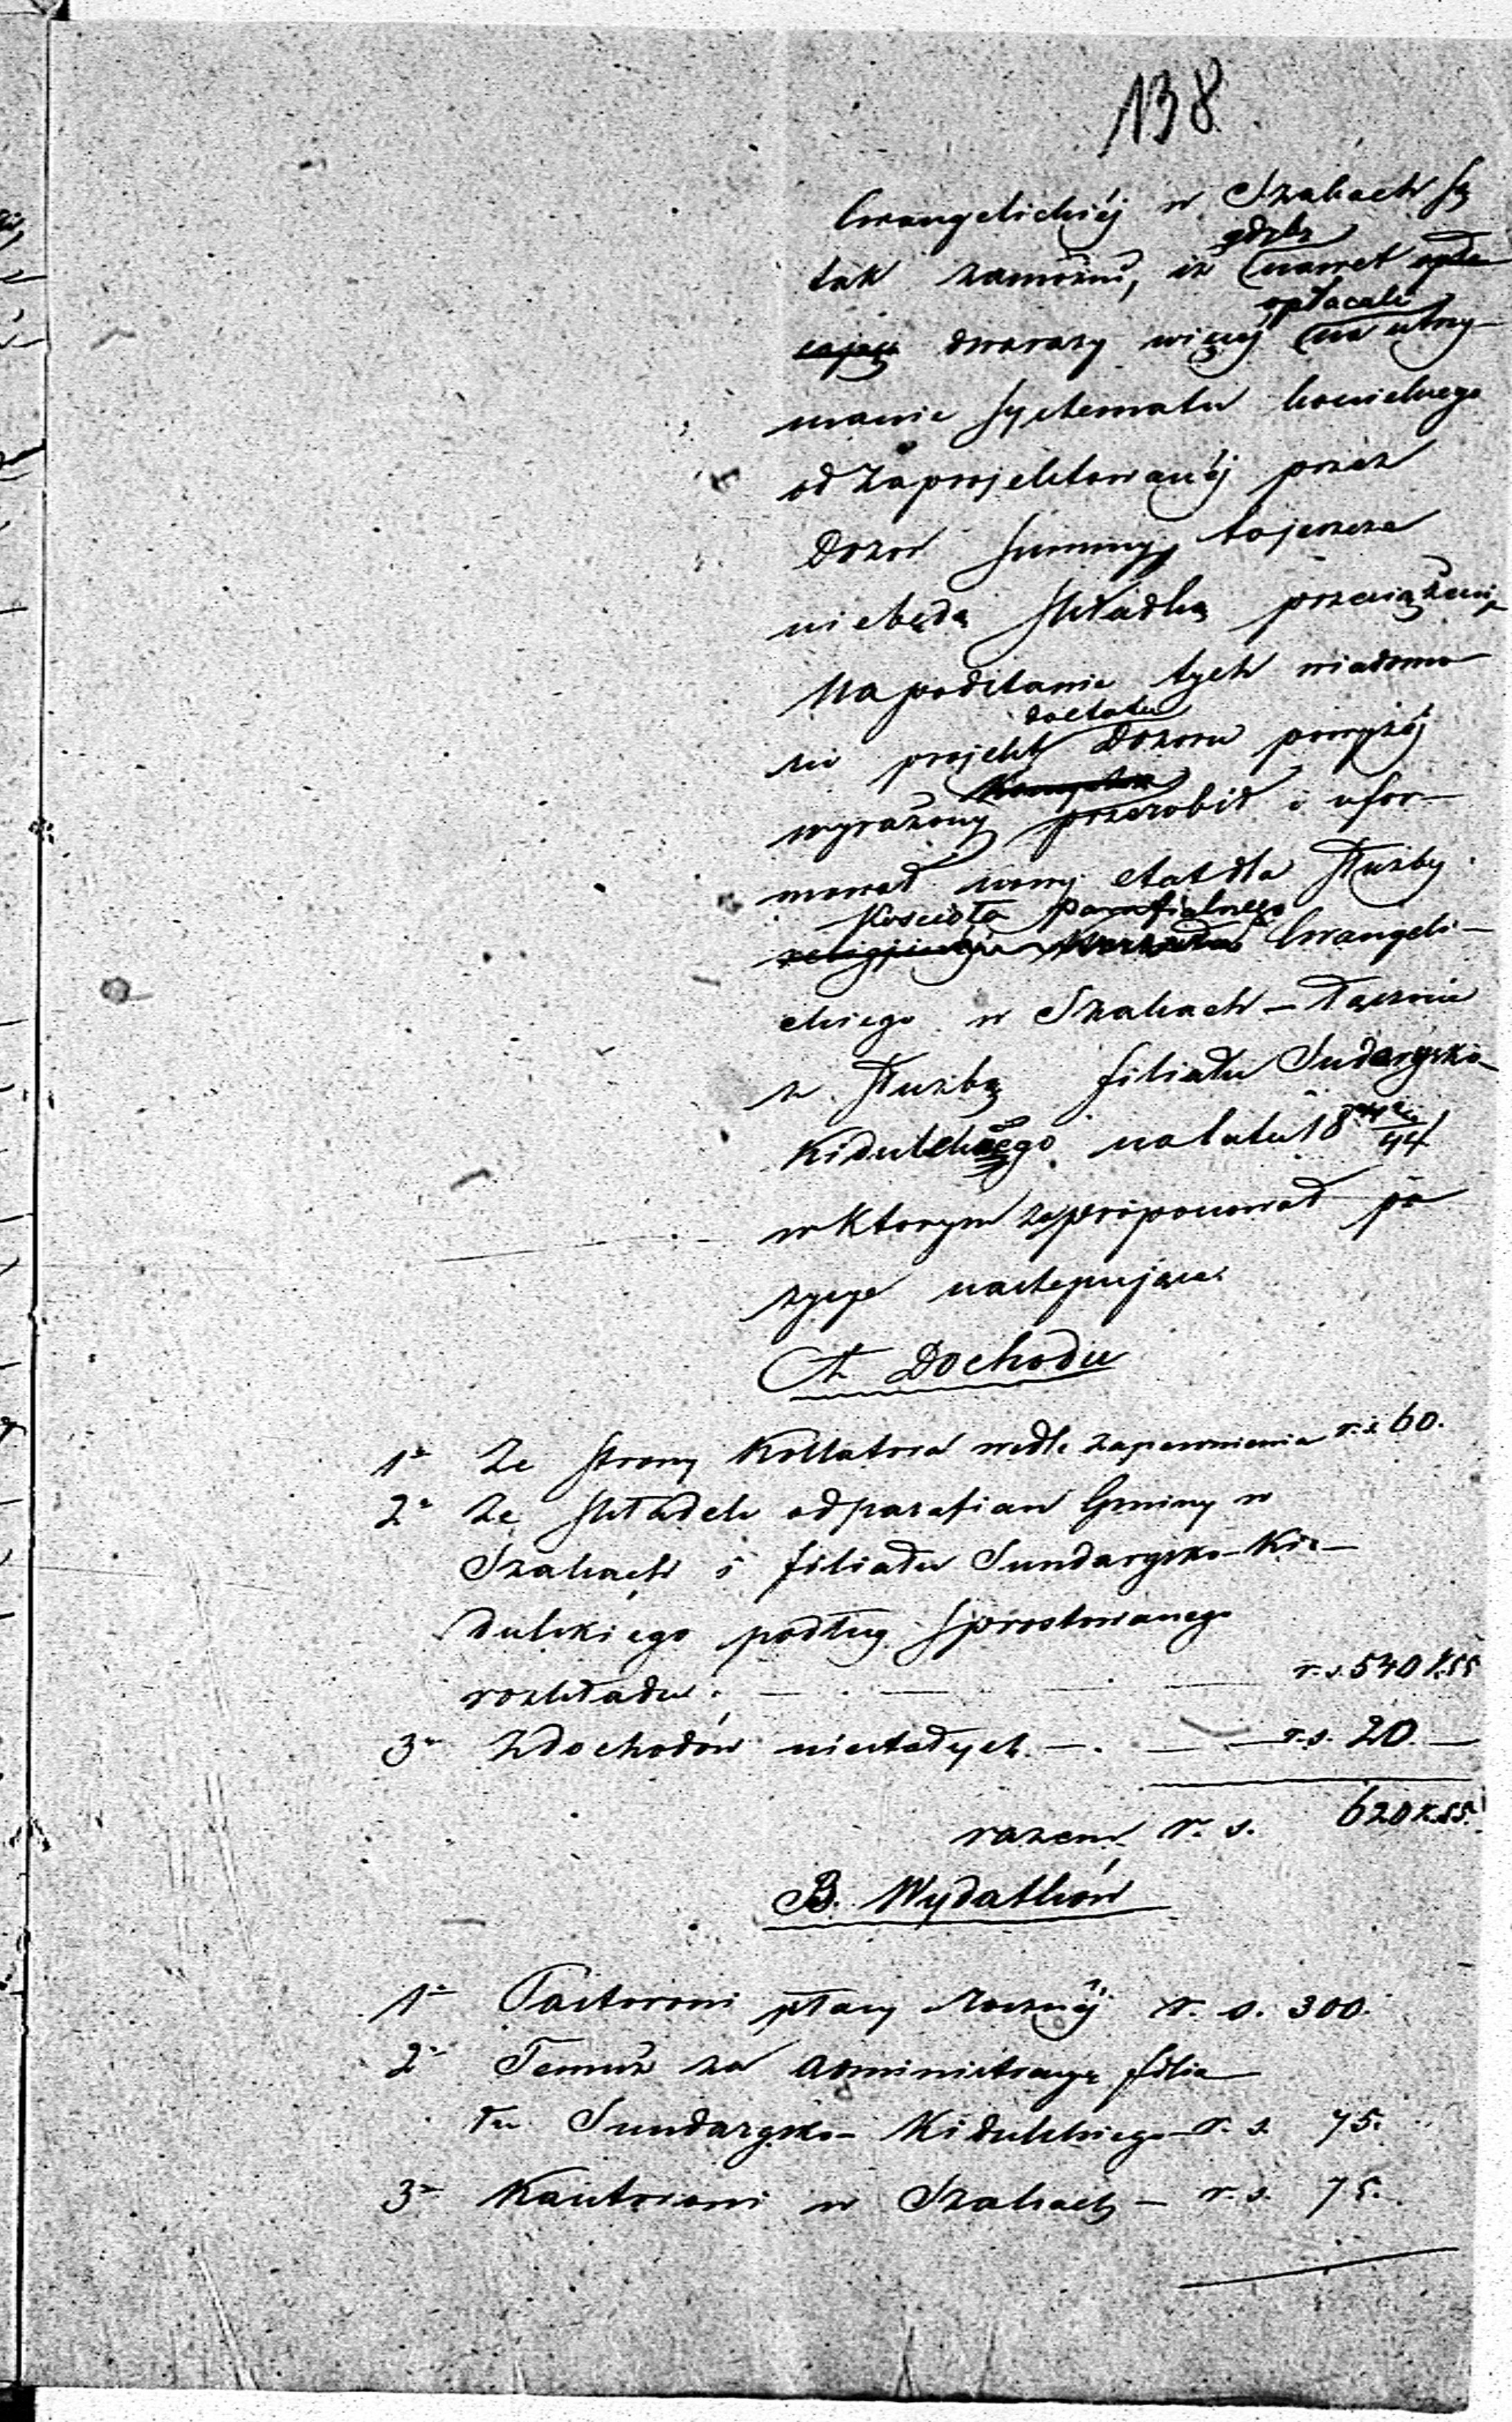 138.
Ewangelickiéj w Szakach są
gdyby
tak zamożni, iż nawet opła
opłacali
cając dwarazy więcej na utrzy-
manie systematu kościelnego
od zaprojektowanéj przez
Dozor summy, tojeszcze
niebędą składką przeciążeni,
Na podstanie tych wiadomo
dostatu
sci projekt Dozoru powyżéj
wyrażony przerobił i ufor-
mował nowy etat dla służby
Kościoła parafialnego
Ewangeli-
ckiego w Szakach – łącznie
z służbą filiału Sudargsko-
Kidulskiego na lata 18 /44
w którym zaproponował po
zycye następujące.
A Dochodu
1o Ze strony Kollatora wedle zapewnienia r.s. 60.
2o Ze składek od parafian Gminy w
Szakach i filiału Sundargsko-Ki-
dulskiego podług sprostowanego
rozkładu. — — — r.s. 540 k. 55
3o z dochodów niestałych. — — r.s. 20 —
razem r. s. 620 k. 55.
B. Wydatków
1o Pastorowi płacy rocznéj r. s. 300.
2o Temuż za administracyę filia
łu Sundargsko-Kidulskiego r. s. 75.
3o Kantorowi w Szakach – r. s. 75.